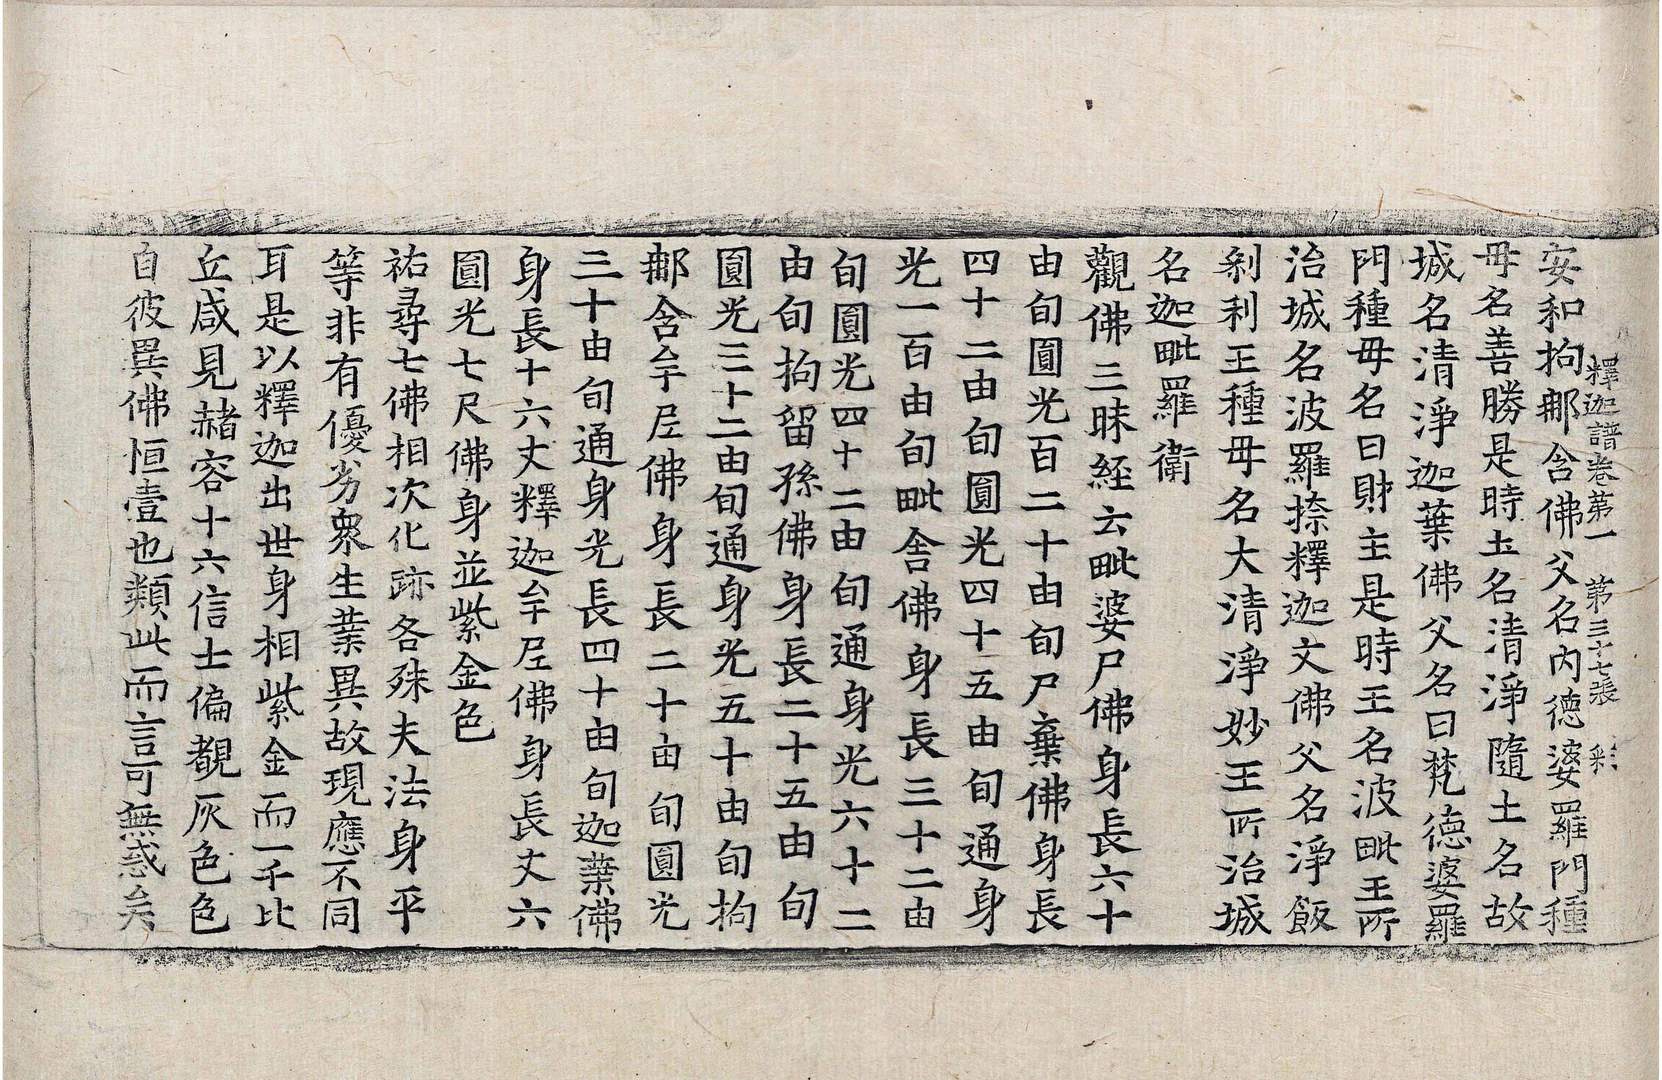 釋迦譜卷第一 第三十七張 彩
安和拘郍含佛父名內德婆羅門種
母名善勝是時王名清淨隨土名故
城名清淨迦葉佛父名曰梵德婆羅
門種母名曰財主是時王名波毗王所
治城名波羅捺釋迦文佛父名淨飯
剎利王種母名大清淨妙王所治城
名迦毗羅衛
觀佛三昧經云毗婆尸佛身長六十
由旬圓光百二十由旬尸棄佛身長
四十二由旬圓光四十五由旬通身
光一百由旬毗舍佛身長三十二由
旬圓光四十二由旬通身光六十二
由旬拘留孫佛身長二十五由旬
圓光三十二由旬通身光五十由旬拘
郍含牟尼佛身長二十由旬圓光
三十由旬通身光長四十由旬迦葉佛
身長十六丈釋迦牟尼佛身長丈六
圓光七尺佛身並紫金色
祐尋七佛相次化跡各殊夫法身平
等非有優劣衆生業異故現應不同
耳是以釋迦出世身相紫金而一千比
丘咸見赭容十六信士偏覩灰色色
自彼異佛恒壹也類此而言可無惑矣